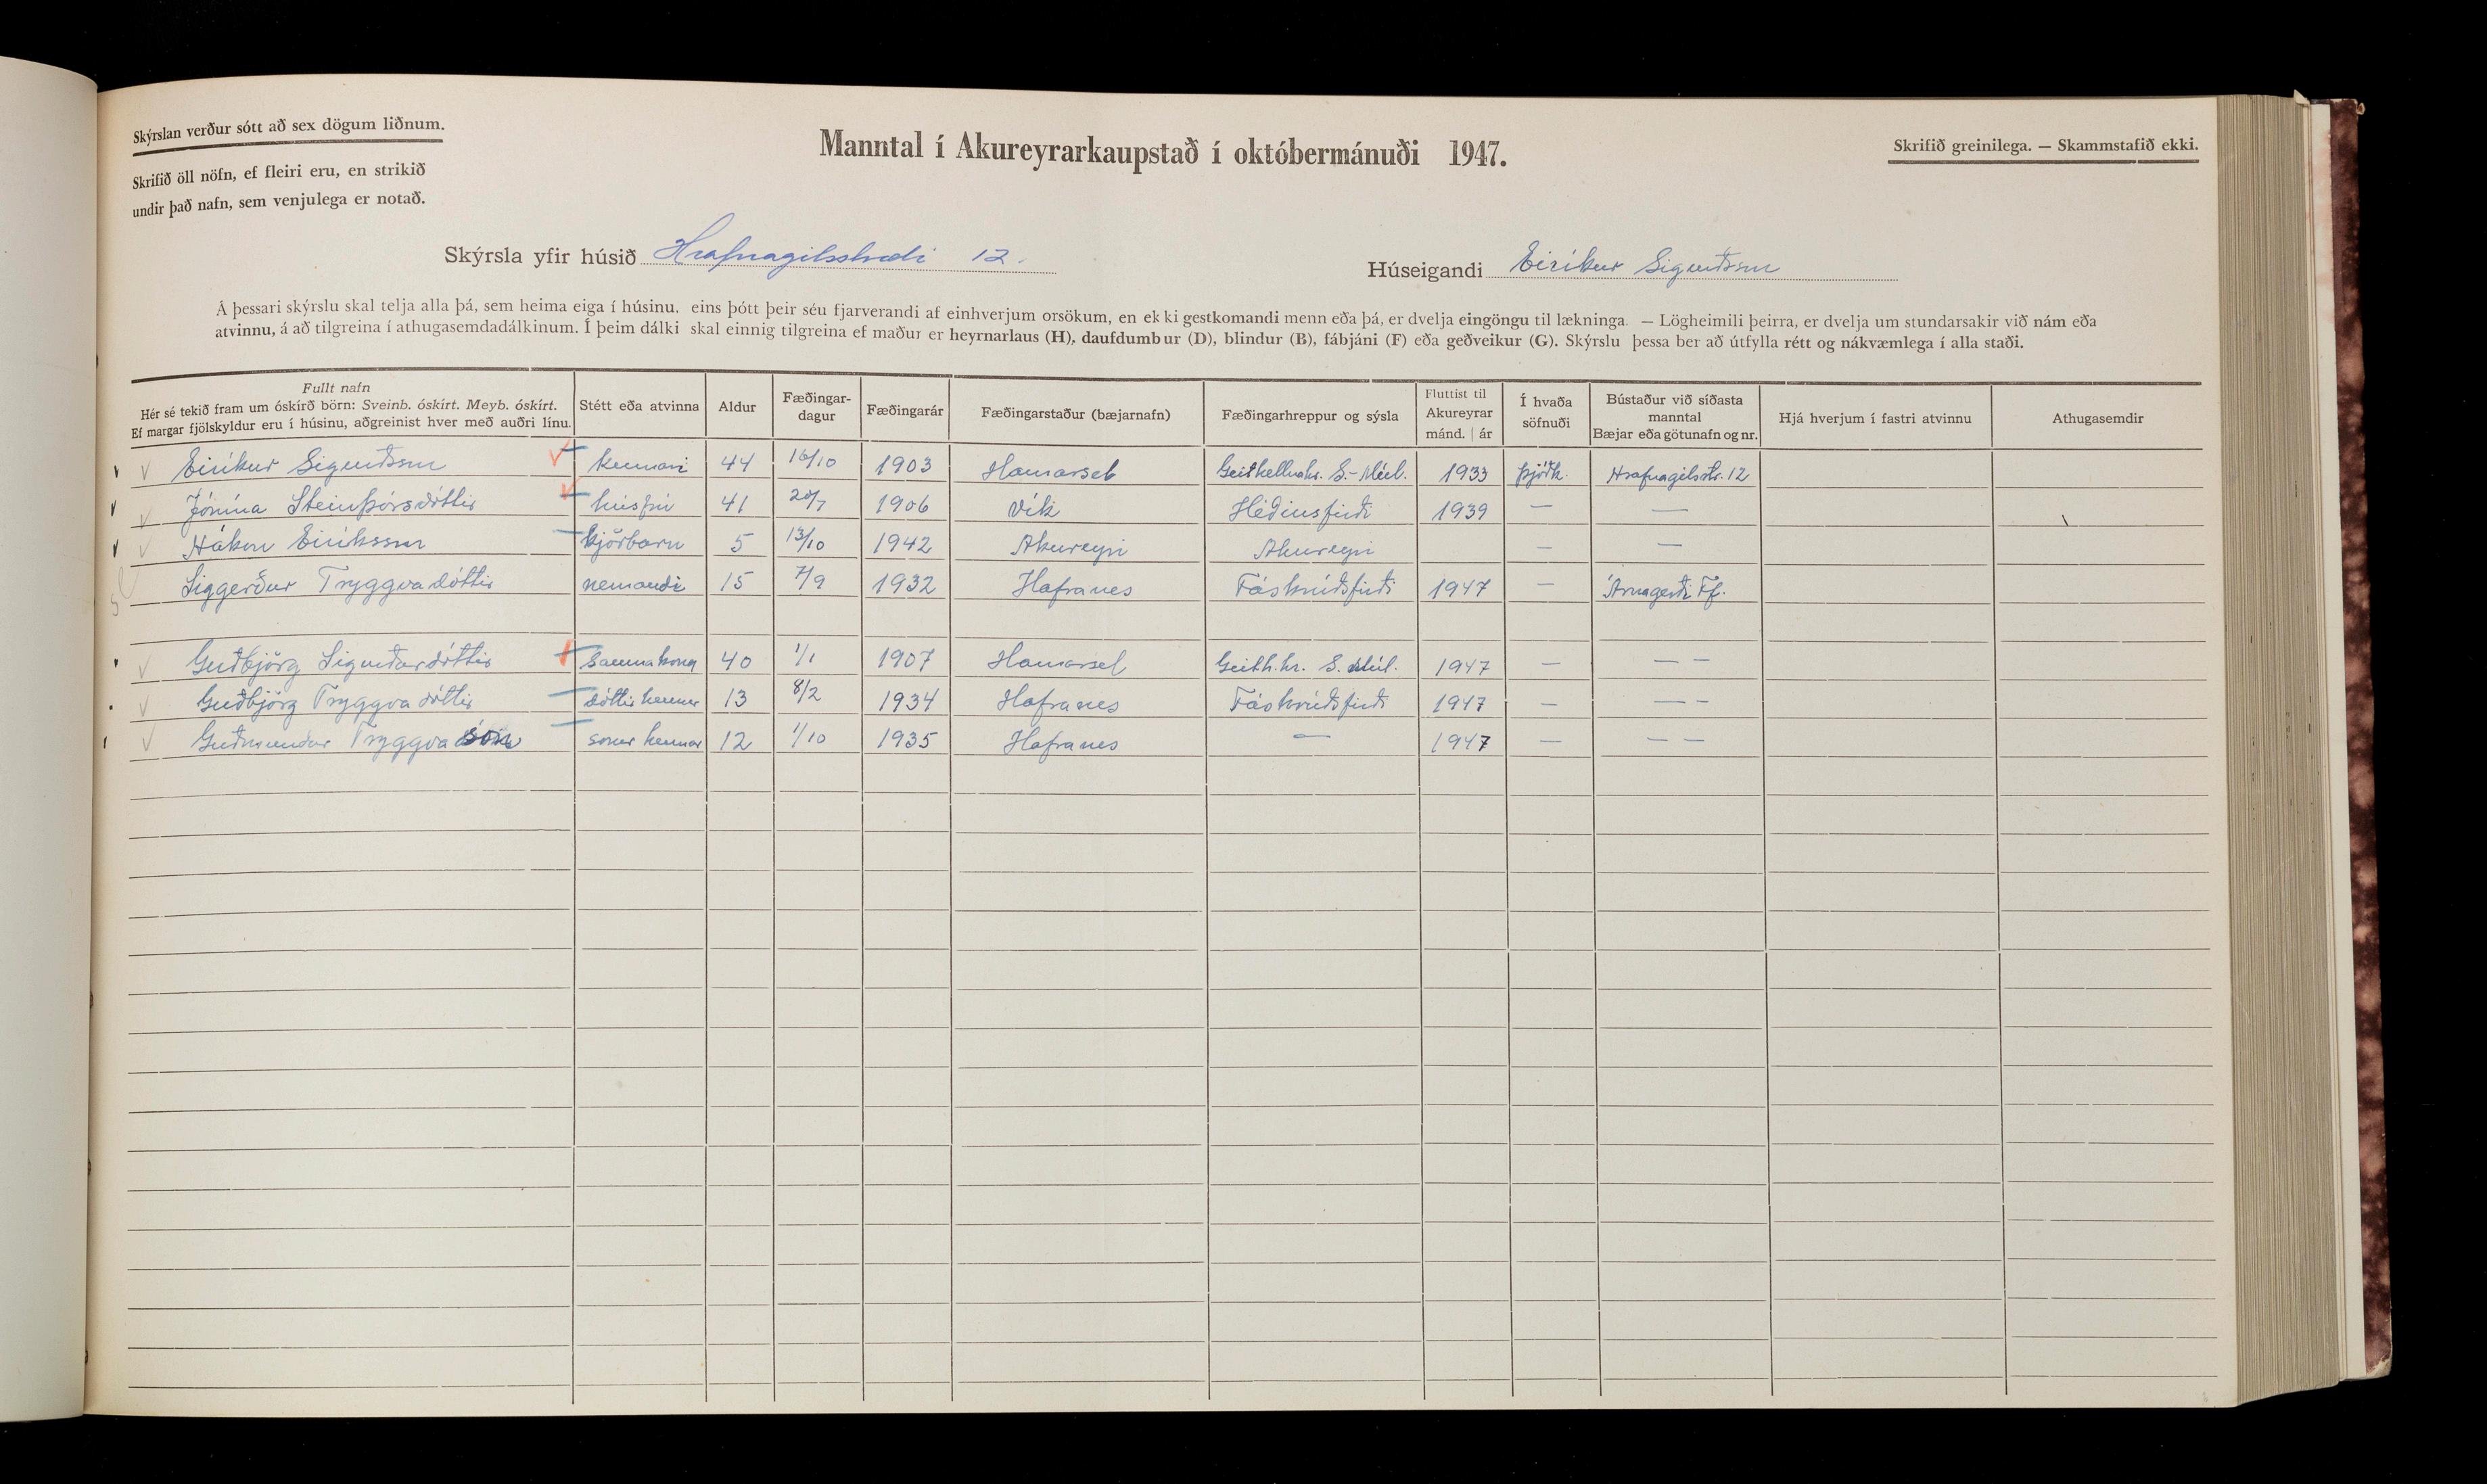 Skýrslan verður sótt að sex dögum liðnum.
Skrifið öll nöfn, ef fleiri eru, en strikið
undir það nafn, sem venjulega er notað.
Manntal í Akureyrarkaupstað í októbermánuði 1947.
Skrifið greinilega. — Skammstafið ekki.
Skýrsla yfir húsið Hrafnagilsstræti 12.
Húseigandi Eiríkur Sigurðsson
Á þessari skýrslu skal telja alla þá, sem heima eiga í húsinu. eins þótt þeir séu fjarverandi af einhverjum orsökum, en ekki gestkomandi menn eða þá, er dvelja eingöngu til lækninga. — Lögheimili þeirra, er dvelja um stundarsakir við nám eða
atvinnu, á að tilgreina í athugasemdadálkinum. Í þeim dálki skal einnig tilgreina ef maður er heyrnarlaus (H), daufdumbur (D), blindur (B), fábjáni (F) eða geðveikur (G). Skýrslu þessa ber að útfylla rétt og nákvæmlega í alla staði.
Fullt nafn
Hér sé tekið fram um óskírð börn: Sveinb. óskírt. Meyb. óskírt.
Ef margar fjölskyldur eru í húsinu, aðgreinist hver með auðri línu.
Stétt eða atvinna
Aldur
Fæðingar-
dagur
Fæðingarár
Fæðingarstaður (bæjarnafn)
Fæðingarhreppur og sýsla
Fluttist til
Akureyrar
mánd. | ár
Í hvaða
söfnuði
Bústaður við síðasta
manntal
Bæjar eða götunafn og nr.
Hjá hverjum í fastri atvinnu
Athugasemdir
Eiríkur Sigurðsson kennari 44 16/10 1903 Hamarsel Geithellnahr. S.-Múl. 1933 þjóðk. Hrafnagilsstr. 12
Jónína Steinþórsdóttir húsfrú 41 20/7 1906 Vík Héðinsfirði 1939 — —
Hákon Eiríksson kjörbarn 5 13/10 1942 Akureyri Akureyri — —
Siggerður Tryggvadóttir nemandi 15 7/9 1932 Hafranes Fáskrúðsfirði 1947 — Árnagerði Ff.
Guðbjörg Sigurðardóttir saumakona 40 1/1 1907 Hamarsel Geith.hr. S. Múl. 1947 — — —
Guðbjörg Tryggvadóttir dóttir hennar 13 8/2 1934 Hafranes Fáskrúðsfirði 1947 — — —
Guðmundur Tryggvason sonur hennar 12 1/10 1935 Hafranes — 1947 — — —